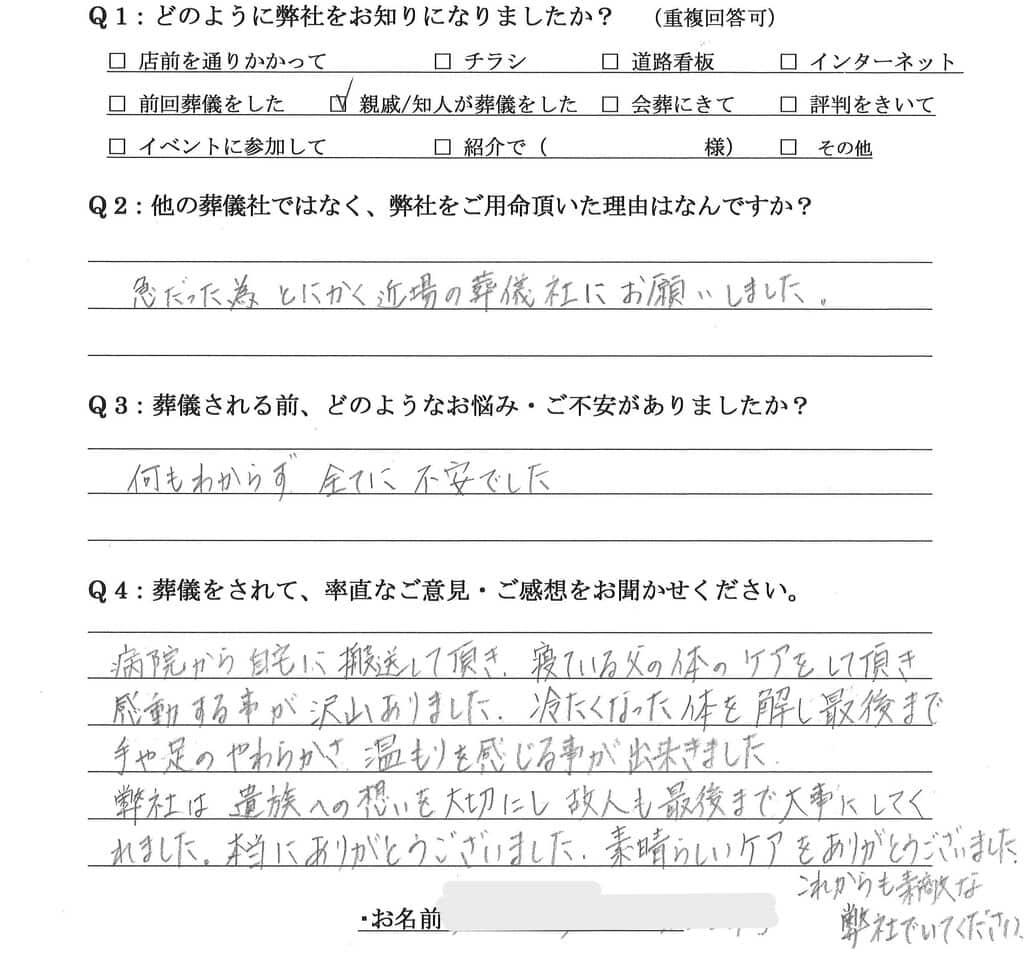 Q1：どのように弊社をお知りになりましたか？　（重複回答可）
□ 店前を通りかかって　□ チラシ　□ 道路看板　□ インターネット
□ 前回葬儀をした　☑ 親戚/知人が葬儀をした　□ 会葬にきて　□ 評判をきいて
□ イベントに参加して　□ 紹介で（　　　　　　様）　□ その他
Q2：他の葬儀社ではなく、弊社をご用命頂いた理由はなんですか？
急だった為、とにかく近場の葬儀社にお願いしました。
Q3：葬儀される前、どのようなお悩み・ご不安がありましたか？
何もわからず 全てに 不安でした
Q4：葬儀をされて、率直なご意見・ご感想をお聞かせください。
病院から自宅に搬送して頂き、寝ている父の体のケアをして頂き
感動する事が沢山ありました。冷たくなった体を解し最後まで
手や足のやわらかさ、温もりを感じる事が出来きました。
弊社は遺族への想いを大切にし故人も最後まで大事にしてく
れました。本当にありがとうございました。素晴らしいケアをありがとうございました。
これからも素敵な
弊社でいてください。
・お名前